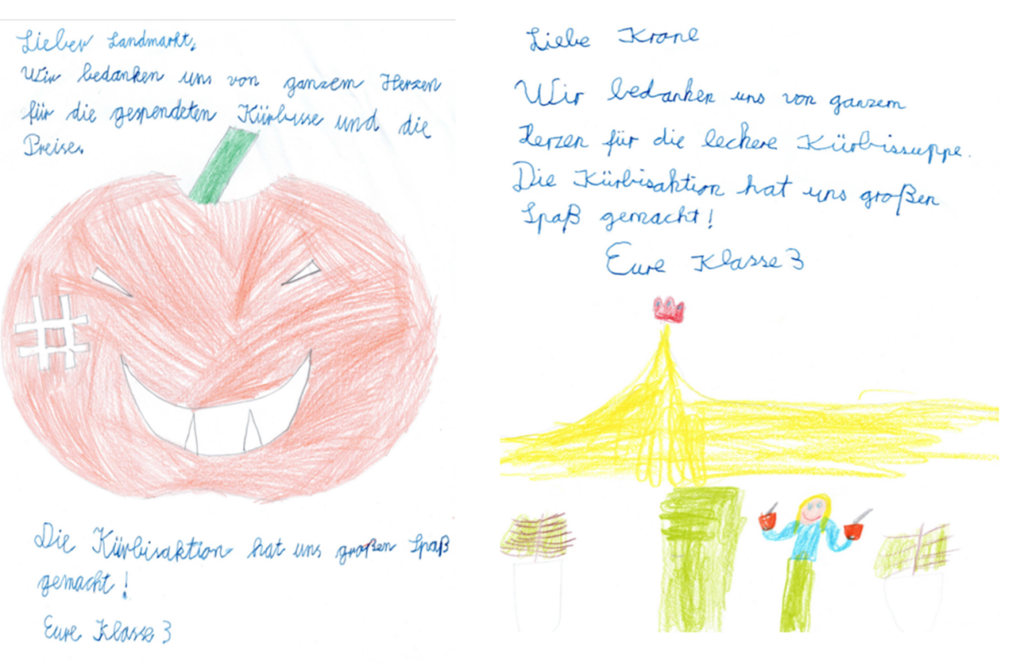 Lieber Landmarkt,
Wir bedanken uns von ganzem Herzen
für die gespendeten Kürbisse und die
Preise.
Die Kürbisaktion hat uns großen Spaß
gemacht!
Eure Klasse 3
Liebe Krone
Wir bedanken uns von ganzem
Herzen für die leckere Kürbissuppe.
Die Kürbisaktion hat uns großen
Spaß gemacht!
Eure Klasse 3